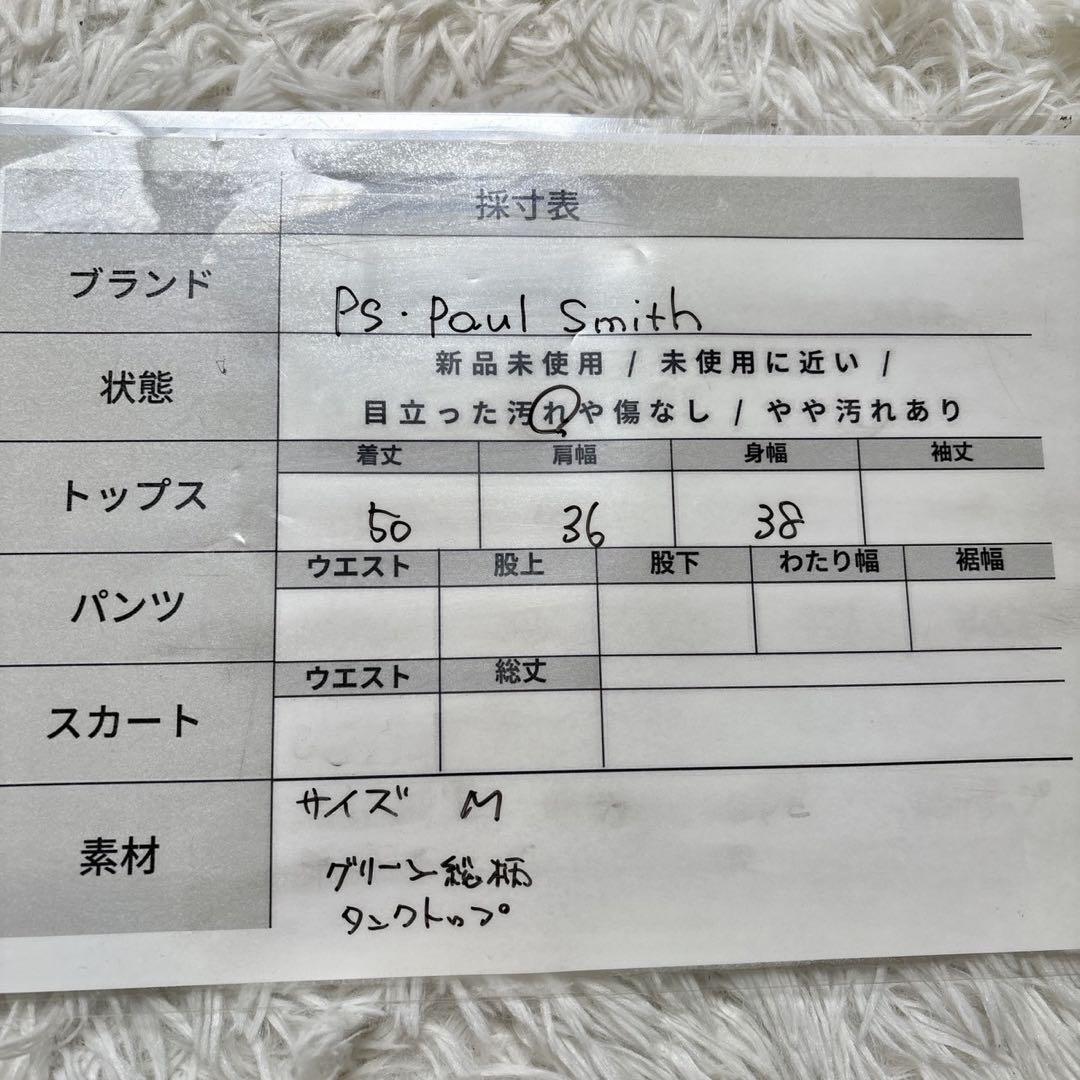 採寸表
ブランド
PS・Paul Smith
状態
新品未使用 / 未使用に近い /
目立った汚れや傷なし / やや汚れあり
トップス
着丈 肩幅 身幅 袖丈
50 36 38
パンツ
ウエスト 股上 股下 わたり幅 裾幅
スカート
ウエスト 総丈
素材
サイズ M
グリーン総柄
タンクトップ